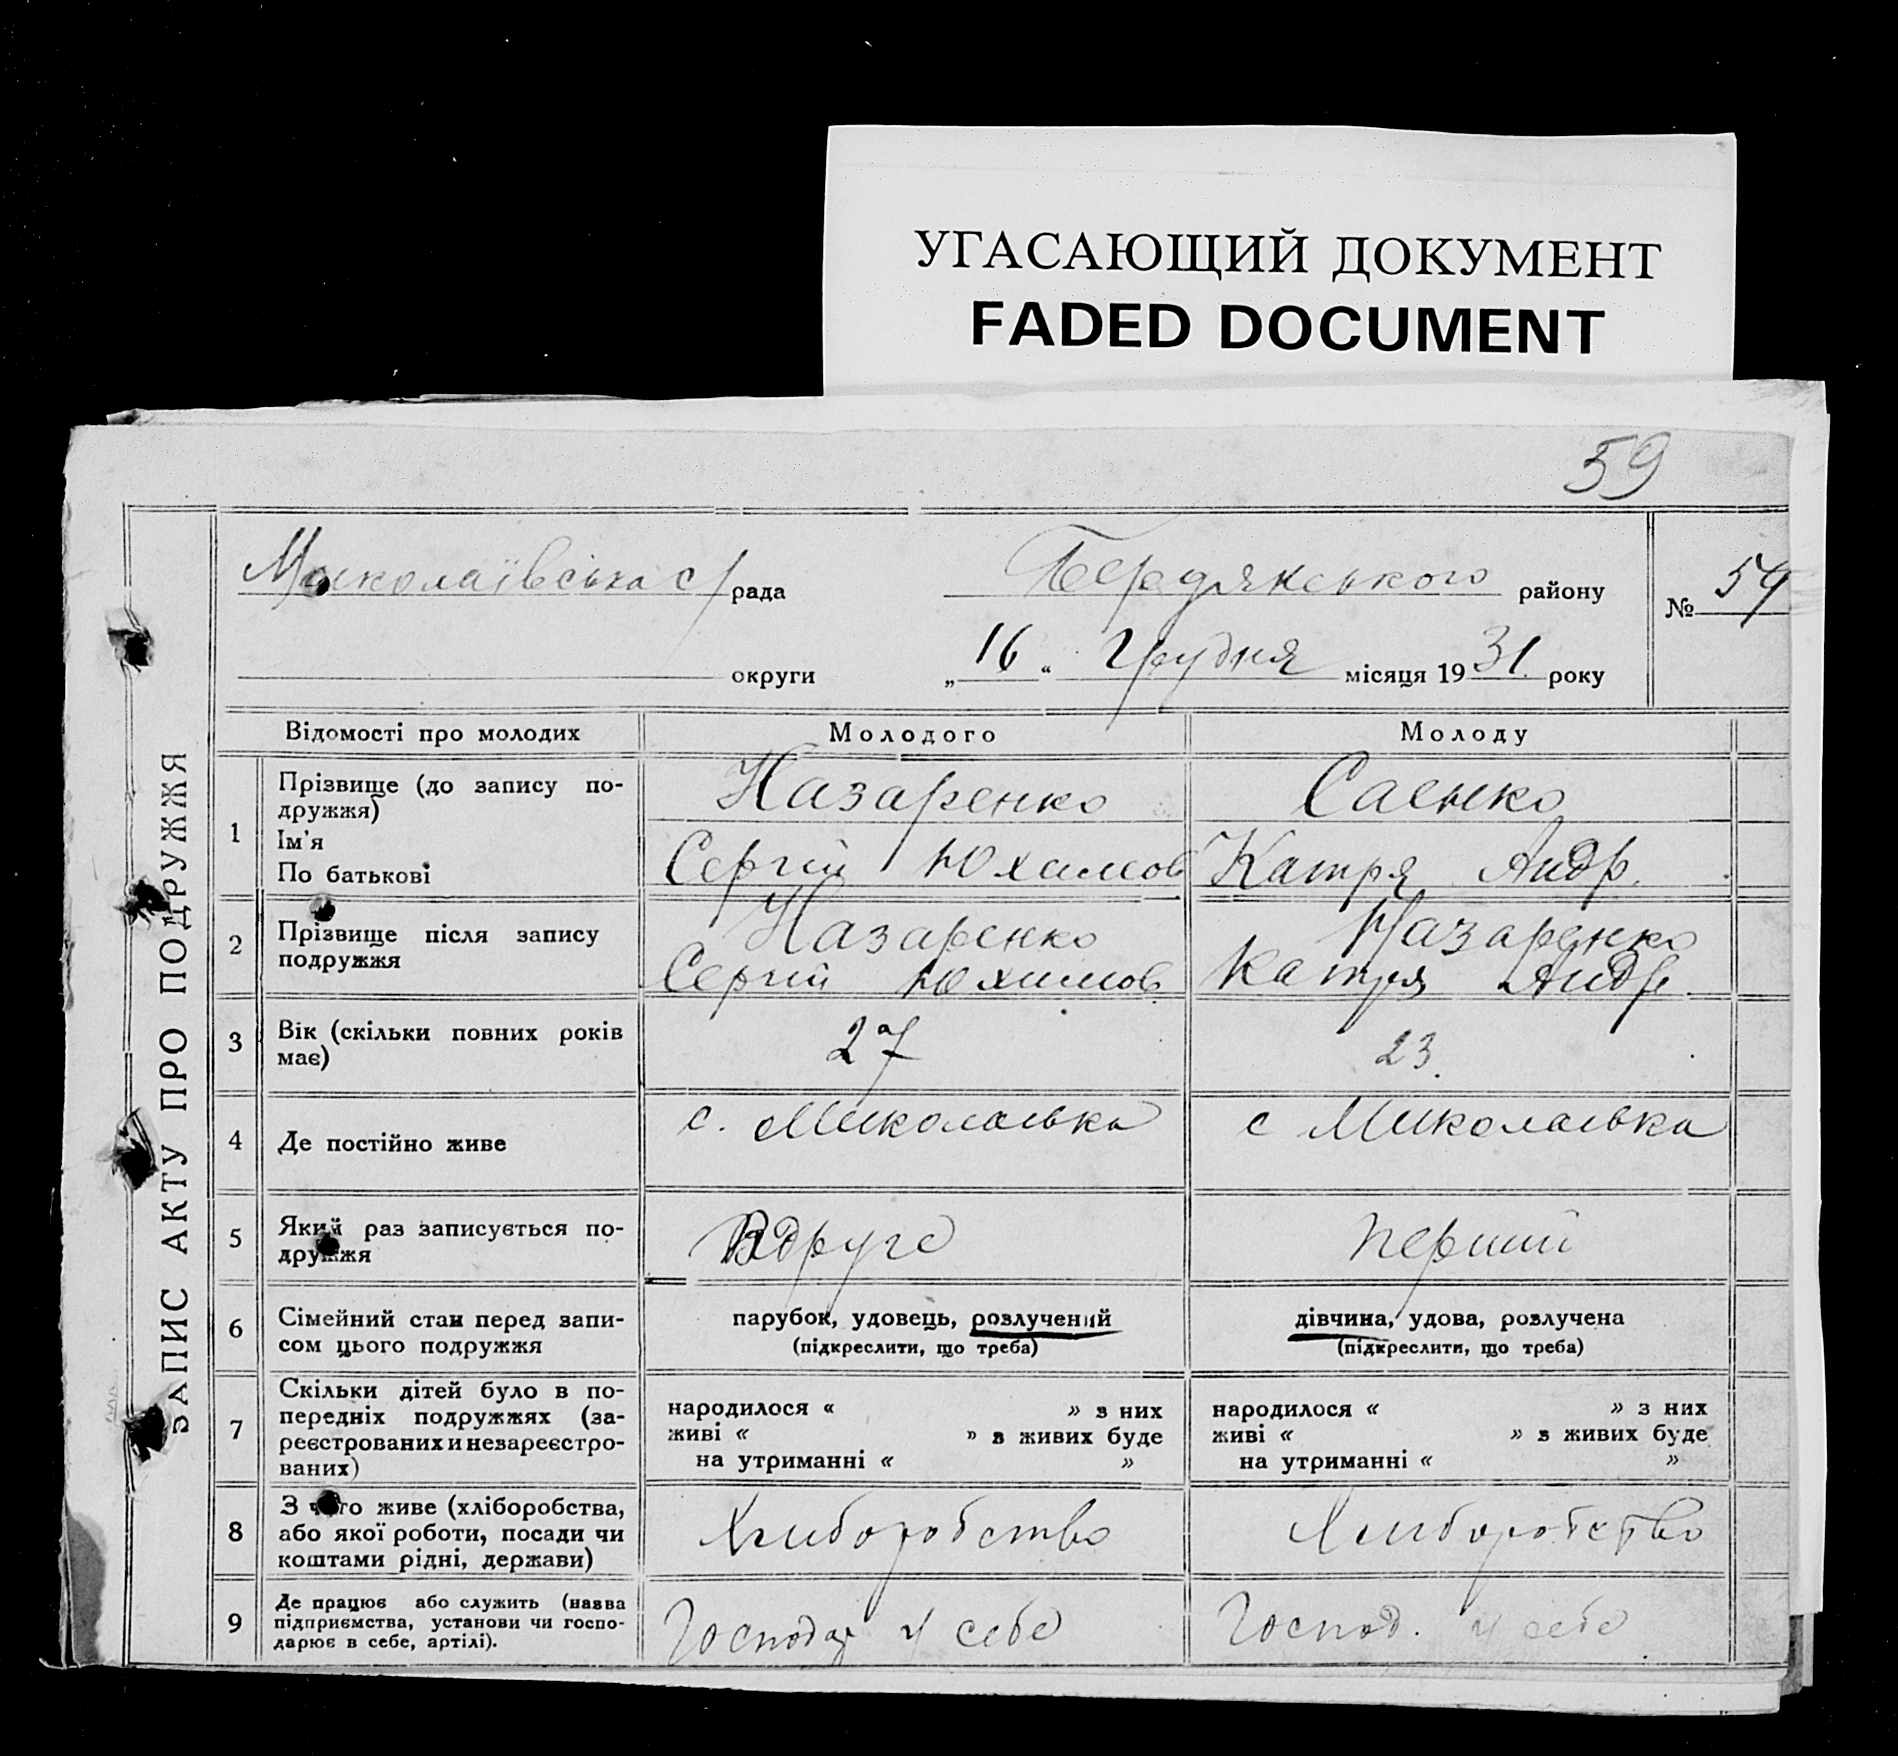 УГАСАЮЩИЙ ДОКУМЕНТ
FADED DOCUMENT
59
Миколаївська с/рада Бердянського району № 59
округи „16“ Грудня місяця 1931 року
ЗАПИС АКТУ ПРО ПОДРУЖЖЯ
Відомості про молодих Молодого Молоду
1 Прізвище (до запису по-
дружжя) Назаренко Саенко
Ім'я
По батькові Сергій Юхимов Катря Андр.
2 Прізвище після запису
подружжя Назаренко Назаренко
Сергій Юхимов. Катря Андр.
3 Вік (скільки повних років
має) 27 23.
4 Де постійно живе с. Миколаівка с Миколаівка
5 Який раз записується по-
дружжя Вдруге перший
6 Сімейний стан перед запи-
сом цього подружжя парубок, удовець, розлучений дівчина, удова, розлучена
(підкреслити, що треба) (підкреслити, що треба)
7 Скільки дітей було в по-
передніх подружжях (за-
реєстрованих и незареєстро-
ваних) народилося « » з них народилося « » з них
живі « » з живих буде живі « » з живих буде
на утриманні « » на утриманні « »
8 З чого живе (хліборобства,
або якої роботи, посади чи
коштами рідні, держави) Хлиборобство Хлиборобство
9 Де працює або служить (назва
підприємства, установи чи госпо-
дарює в себе, артілі). Господар у себе Господ. у себе